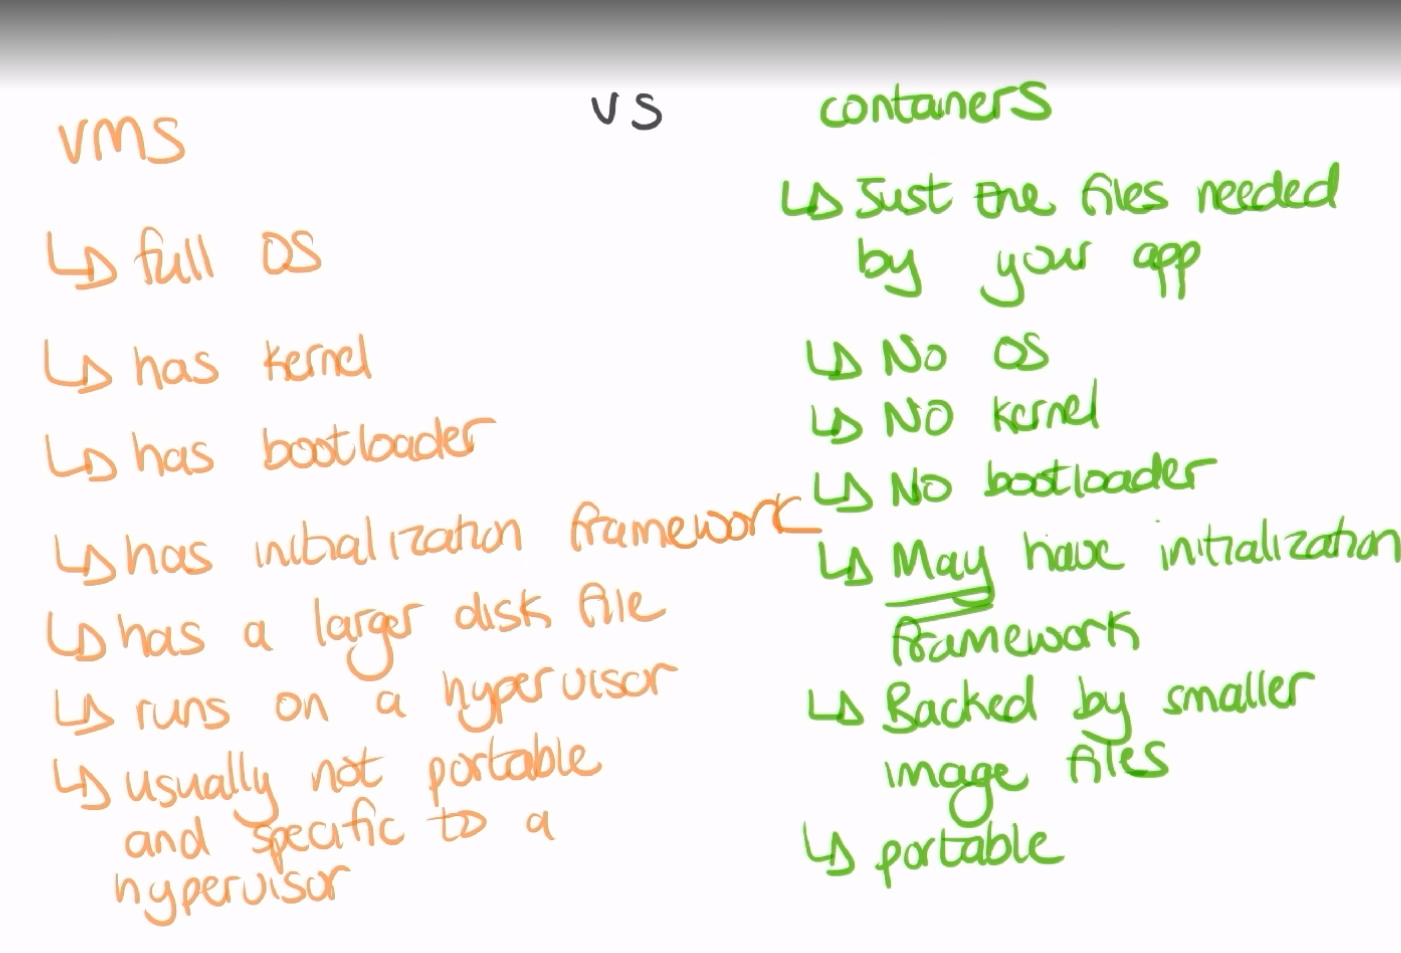 vms
↳ full OS
↳ has kernel
↳ has bootloader
↳ has initialization framework
↳ has a larger disk file
↳ runs on a hypervisor
↳ usually not portable
and specific to a
hypervisor
vs
containers
↳ Just the files needed
by your app
↳ No OS
↳ NO kernel
↳ NO bootloader
↳ May have initialization
framework
↳ Backed by smaller
image files
↳ portable